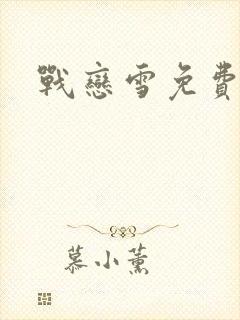 戰戀雪免費
慕小薰